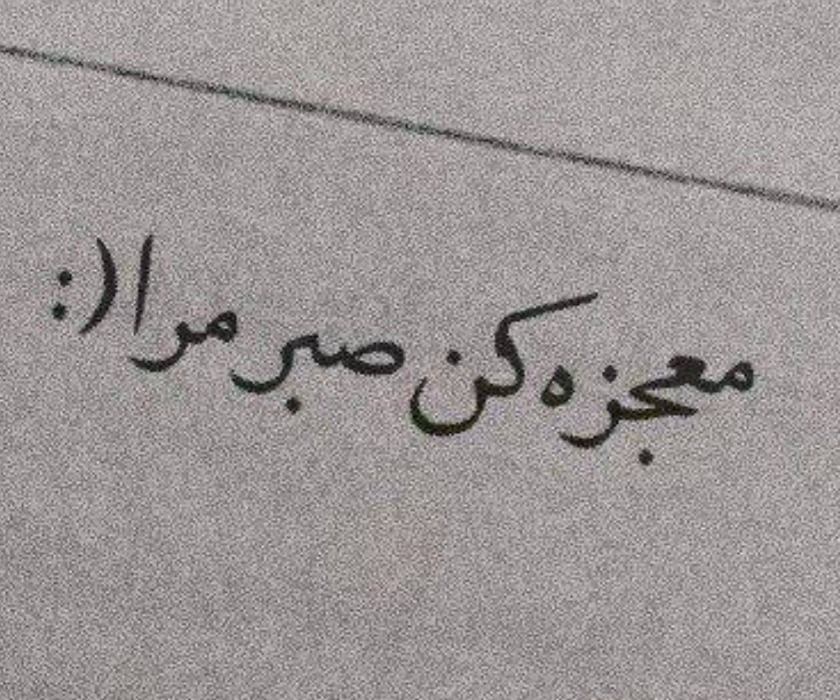 معجزه کن صبر مرا(: